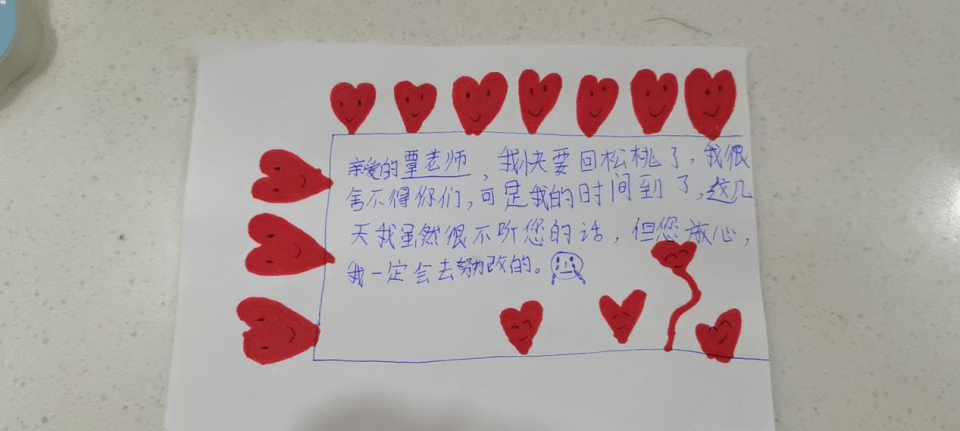 亲爱的覃老师，我快要回松桃了，我很
舍不得你们，可是我的时间到了，这几
天我虽然很不听您的话，但您放心，
我一定会去努力改的。